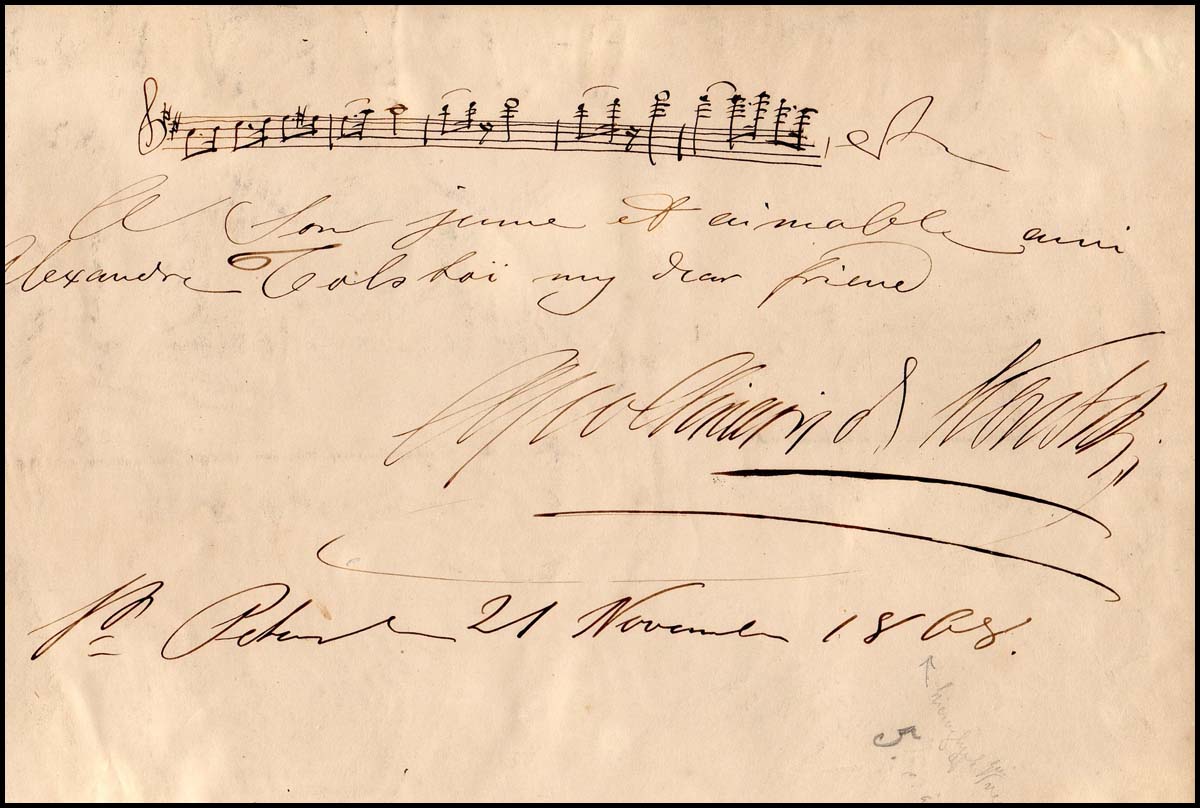 etc
A Son jeune et aimable ami
Alexandre Tolstoï my dear friend
Apollinaire de Kontski
St Petersb 21 November 1868.